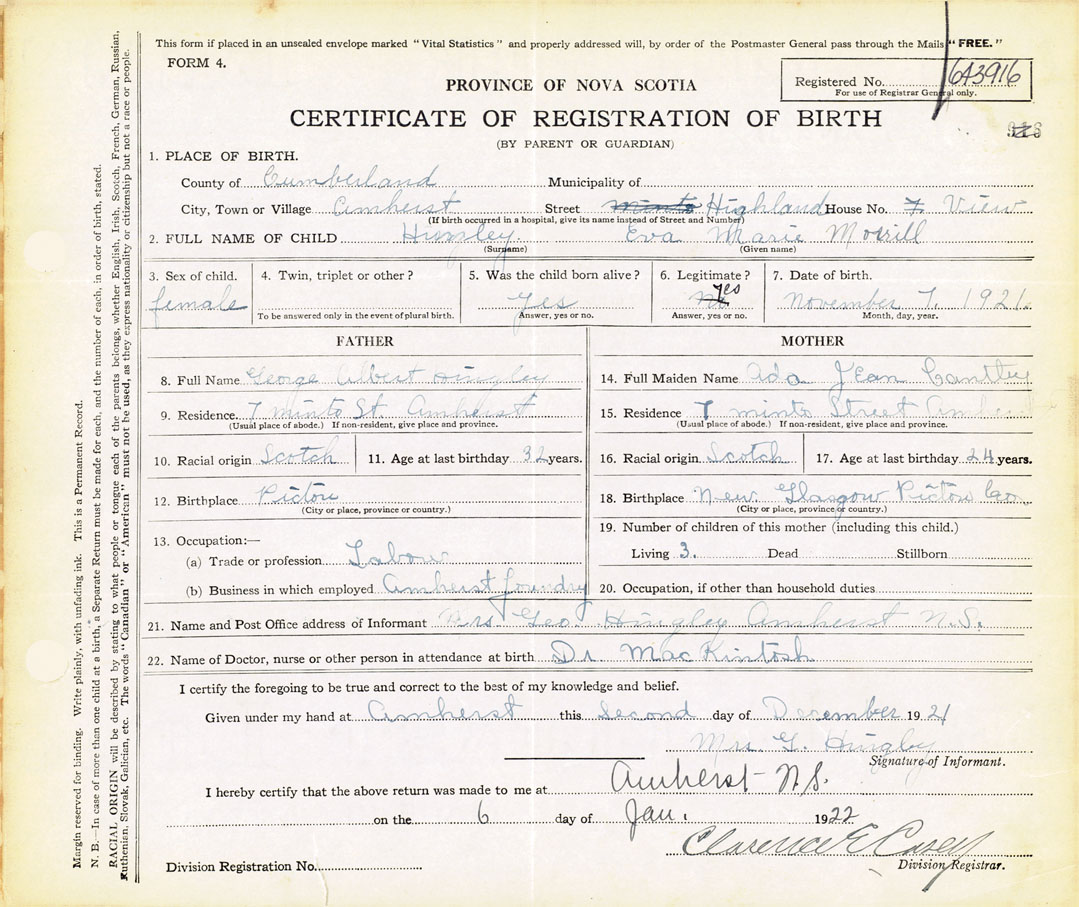 This form if placed in an unsealed envelope marked "Vital Statistics" and properly addressed will, by order of the Postmaster General pass through the Mails "FREE."
FORM 4.
Registered No. 643916
For use of Registrar General only.
PROVINCE OF NOVA SCOTIA
CERTIFICATE OF REGISTRATION OF BIRTH
(BY PARENT OR GUARDIAN)
1. PLACE OF BIRTH.
County of Cumberland Municipality of
City, Town or Village Amherst Street Minto Highland House No. 7 View
(If birth occurred in a hospital, give its name instead of Street and Number)
2. FULL NAME OF CHILD Hingley Eva Marie Morrill
(Surname) (Given name)
3. Sex of child. 4. Twin, triplet or other? 5. Was the child born alive? 6. Legitimate? 7. Date of birth.
female Yes No yes November 7, 1921.
To be answered only in the event of plural birth. Answer, yes or no. Answer, yes or no. Month, day, year.
FATHER
8. Full Name George Albert Hingley
9. Residence. 7 minto St. Amherst
(Usual place of abode.) If non-resident, give place and province.
10. Racial origin Scotch 11. Age at last birthday 32 years.
12. Birthplace Pictou
(City or place, province or country.)
13. Occupation:—
(a) Trade or profession Labour
(b) Business in which employed Amherst foundry
MOTHER
14. Full Maiden Name Ada Jean Cantley
15. Residence 7 minto Street Amherst
(Usual place of abode.) If non-resident, give place and province.
16. Racial origin Scotch 17. Age at last birthday 24 years.
18. Birthplace New Glasgow Pictou Co.
(City or place, province or country.)
19. Number of children of this mother (including this child.)
Living 3. Dead Stillborn
20. Occupation, if other than household duties
21. Name and Post Office address of Informant Mrs. Geo. Hingley Amherst N.S.
22. Name of Doctor, nurse or other person in attendance at birth Dr MacKintosh
I certify the foregoing to be true and correct to the best of my knowledge and belief.
Given under my hand at Amherst this Second day of December 1921
Mrs. G. Hingley
Signature of Informant.
I hereby certify that the above return was made to me at Amherst N.S.
on the 6 day of Jan. 1922
Clarence E Casey
Division Registrar.
Division Registration No.
Margin reserved for binding. Write plainly, with unfading ink. This is a Permanent Record.
N. B.—In case of more than one child at a birth, a Separate Return must be made for each, and the number of each, in order of birth, stated.
RACIAL ORIGIN will be described by stating to what people or tongue each of the parents belongs, whether English, Irish, Scotch, French, German, Russian,
Ruthenian, Slovak, Galician, etc. The words "Canadian" or "American" must not be used, as they express nationality or citizenship but not a race or people.